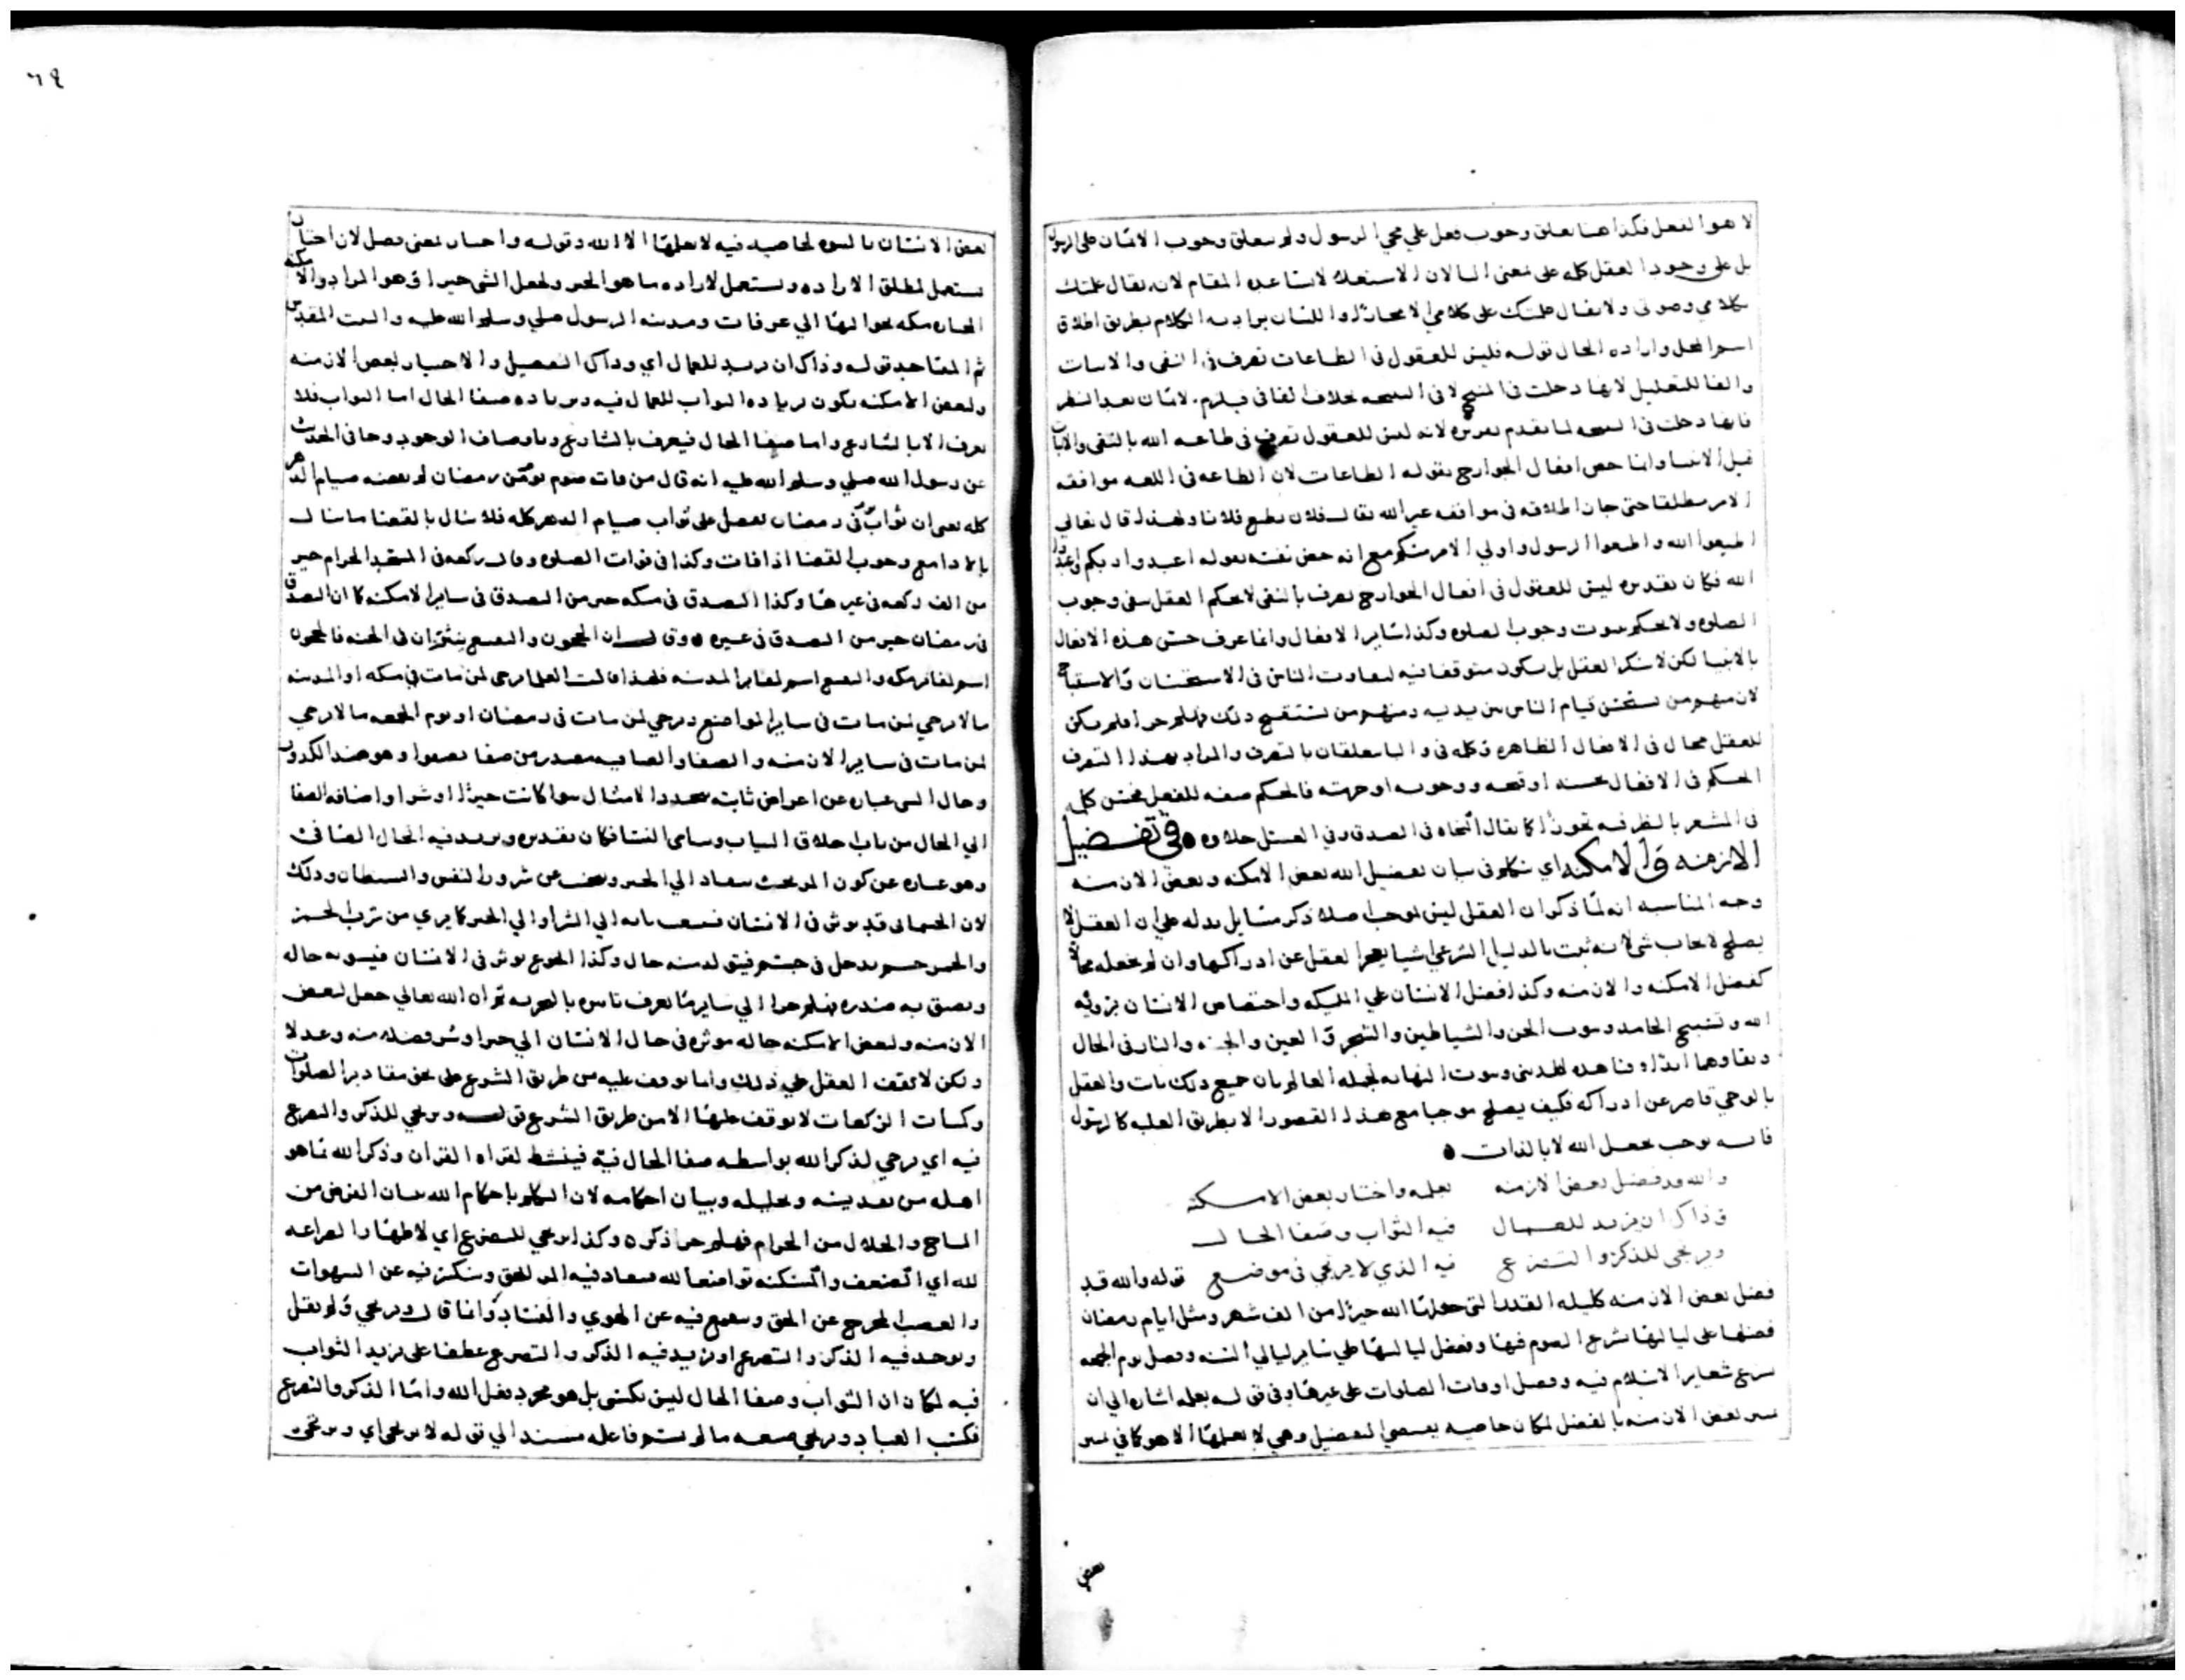 لا هو الفعل فكذا هنا تعلق وجوب فعل علي مجي الرسول ولم يتعلق وجوب الايمان على الرسول
بل على وجود العقل كله على بمعنى البا لان الاستعلا لا يساعده المقام لانه يقال علمتك
بكلامي وصوتي ولا يقال علمتك على كلامي الا مجازا واللسان يراد به الكلام بطريق اطلاق
اسم المحل وارادة الحال قوله فليس للعقول في الطاعات تصرف في النفي والاثبات
والفا للتعليل لانها دخلت في المنتج لا في النتيجه بخلاف الفا في فيلزم الايمان بعد النظر
فانها دخلت في النتيجه لما تقدم تقريره لانه ليس للعقول تصرف في طاعه الله بالنفي والاثبات
قبل الانبيا وانما خص افعال الجوارح بقوله الطاعات لان الطاعه في اللغه موافقه
الامر مطلقا حتى جاز اطلاقه في موافقه غير الله يقال فلان يطيع فلانا ولهذا قال تعالي
اطيعوا الله واطيعوا الرسول واولي الامر منكم مع انه خص نفسه بقوله اعبدوا ربكم اي اعبدوا
الله فكان تقديره ليس للعقول في افعال الجوارح تصرف بالنفي لا يحكم العقل بنفي وجوب
الصلوه ولا يحكم بثبوت وجوب الصلوه وكذا ساير الافعال وانما عرف حسن هذه الافعال
بالانبيا لكن لا ينكر العقل بل يكون متوقفا فيه لتفاوت الناس في الاستحسان والاستقباح
لان منهم من يستحسن قيام الناس بين يديه ومنهم من يستقبح ذلك فهلم جرا فلم يكن
للعقل مجال في الافعال الظاهره وكله في والبا متعلقان بالتصرف والمراد بهذا التصرف
الحكم في الافعال بحسنه او قبحه ووجوبه او حرمته فالحكم صفه للفعل فحسن كله
في المشعر بالظرفيه تجوزا كما يقال النجاه في الصدق وفي العسل حلاوه ٥ في تفضيل
الازمنه والامكنه اي نتكلم في بيان تفضيل الله بعض الامكنه وبعض الازمنه
وجه المناسبه انه لما ذكر ان العقل ليس بموجب اصلا ذكر مسايل يدله علي ان العقل لا
يصلح لايجاب شي لانه ثبت بالدليل الشرعي اشيا يعجز العقل عن ادراكها وان لم يجعله محالا
كفضل الامكنه والازمنه وكذا فضل الانسان علي المليكه واختصاص الانسان برؤيه
الله وتسبيح الجامد وثبوت الجن والشياطين والسحر والعين والجنه والنار في الحال
وبقاوهما ابدا وثبوت النهايه لجمله العالم فان جميع ذلك ثابت والعقل
بالوحي قاصر عن ادراكه فكيف يصلح موجبا مع هذا القصور الا بطريق العلم كالرسول
فانه يوجب بجعل الله لا بالذات ٥
والله قد فضل بعض الازمنه بعلمه واختار بعض الامكنه
وذاك ان يزيد للعمال فيه الثواب وصفا الحال
ويرتجى للذكر والتضرع فيه الذي لا يرتجي في موضع قوله والله قد
فضل بعض الازمنه كليله القدر التي جعلها الله خيرا من الف شهر ومثل ايام رمضان
فضلها على لياليها شرع الصوم فيها وفضل لياليها علي ساير ليالي السنه وفضل يوم الجمعه
بشرع شعاير الاسلام فيه وفضل اوقات الصلوات على غيرها وفي قوله بعلمه اشاره الي ان
تميز بعض الازمنه بالفضل لمكان خاصيه بمعنى التفضيل وهي لا يعلمها الا هو كما في تميز
بعض
٦٩
بعض الانسان بالنبوه لخاصيه فيه لا يعلمها الا الله وقوله واختار بمعنى فضل لان اختار
يستعمل لمطلق الاراده ويستعمل لاراده ما هو الخير ولجعل الشي خيرا وهو المراد والامكنه
المختاره مكه حواليها الي عرفات ومدينه الرسول صلي وسلم الله عليه والبيت المقدس
ثم المساجد قوله وذاك ان يزيد للعمال اي وذاك التفضيل والاختيار لبعض الازمنه
ولبعض الامكنه يكون لزياده الثواب للعمال فيه وزياده صفا الحال اما الثواب فلا
يعرف الا بالشارع واما صفا الحال فيعرف بالشارع وباوصاف الوجود وجا في الحديث
عن رسول الله صلي وسلم الله عليه انه قال من فات صوم يوم من رمضان لم يقضه صيام الدهر
كله يعني ان ثواب يوم في رمضان يفضل على ثواب صيام الدهر كله فلا ينال بالقضا ما ينال
بالادا مع وجوب القضا اذا فات وكذا في فوات الصلوه وقال ركعه في المسجد الحرام خير
من الف ركعه في غيرها وكذا التصدق في مكه خير من التصدق في ساير الامكنه كما ان التصدق
في رمضان خير من التصدق في غيره ٥ وقال ان الحجون والبقيع ينثران في الجنه فالحجون
اسم لمقابر مكه والبقيع اسم لمقابر المدينه فلهذا قالت العلما يرجى لمن مات في مكه او المدينه
ما لا يرجي لمن مات في ساير المواضع ويرجي لمن مات في رمضان او يوم الجمعه ما لا يرجي
لمن مات في ساير الازمنه والصفا والصافيه مصدر من صفا يصفوا وهو ضد الكدور
وحال الشي عباره عن اعراض ثابته بتجدد الامثال سوا كانت خيرا او شرا واضافه الصفا
الي الحال من باب اخلاق الثياب فكان تقديره ويزيد فيه الحال الصافي
وهو عباره عن كون المر بحيث ينقاد الي الخير ويعف عن شرور النفس والشيطان وذلك
لان الجسماني قد يوثر في الانسان الي الشر او الي الخير كما يري من شرب الخمر
والخمر جسم يدخل في جسم فيتولد منه حال وكذا الجوع يوثر في الانسان فيسو به حاله
ويضيق به صدره فهلم جرا الي ساير ما يعرف تاثيره بالتجربه ثم ان الله تعالي جعل لبعض
الازمنه ولبعض الامكنه حاله موثره في حال الانسان الي خير او شر فضلا منه وعدلا
ولكن لا يقف العقل علي ذلك وانما يوقف عليه من طريق الشرع علي نحو مقادير الصلوات
وكميات الركعات لا يوقف عليها الا من طريق الشرع قوله ويرتجي للذكر والتضرع
فيه اي يرجي لذكر الله بواسطه صفا الحال فيه فينشط لقراه القران وذكر الله بما هو
اهله من تقديسه وتحليله وبيان احكامه لان التكلم باحكام الله ببيان الفرض من
المباح والحلال من الحرام فهلم جرا ذكر ٥ وكذا يرتجي للتضرع اي لاظهار الضراعه
لله اي الضعف والمسكنه تواضعا لله فينقاد فيه المر للحق وينكسر فيه عن الشهوات
والغضب المخرج عن الحق ويمتنع فيه عن الهوي والفساد وانما قال ويرتجي ولم يقل
ويوجد فيه الذكر والتضرع او يزيد فيه الذكر والتضرع عطفا على يزيد الثواب
فيه لمكان ان الثواب وصفا الحال ليس بكسبي بل هو مجرد فعل الله واما الذكر والتضرع
فكسب العباد ويرتجي صيغه ما لم يسم فاعله مسند الي قوله لا يرتجي اي ويرتجى